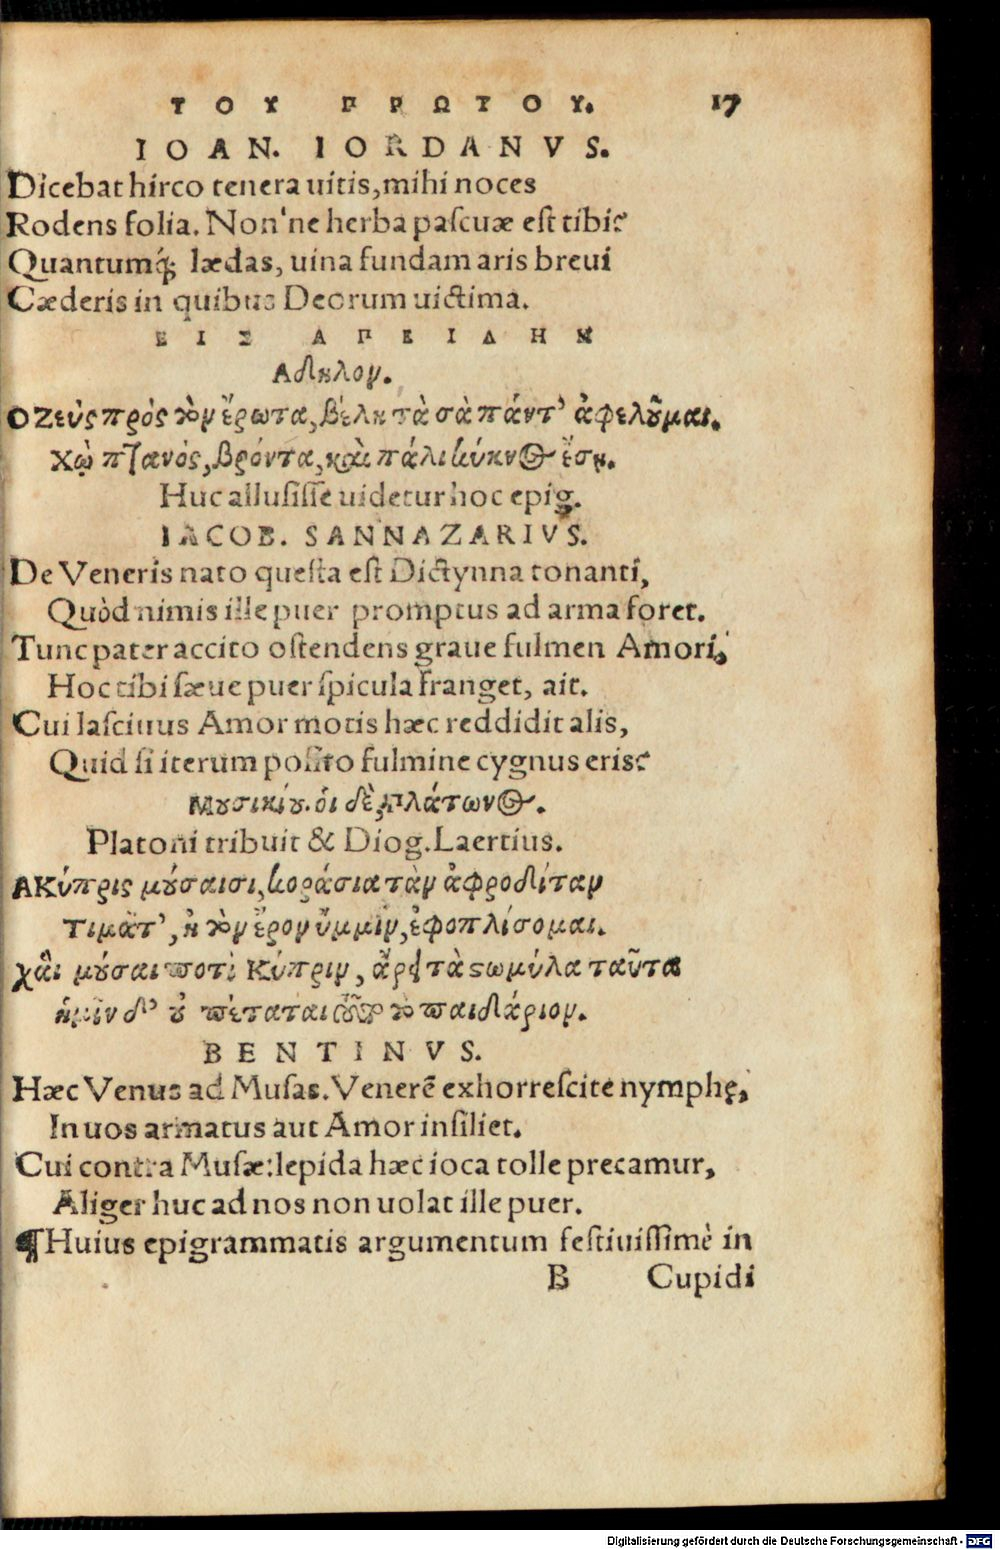 ΤΟΥ ΠΡΩΤΟΥ. 17
IOAN. IORDANVS.
Dicebat hirco tenera uitis, mihi noces
Rodens folia. Non'ne herba pascuæ est tibi?
Quantumq́; lædas, uina fundam aris breui
Cæderis in quibus Deorum uictima.
ΕΙΣ ΑΠΕΙΔΗΝ
Αδηλον.
Ο Ζεὺς πρὸς τὸν ἔρωτα, βέλη τὰ σὰ πάντ' ἀφελοῦμαι.
Χὠ πτανὸς, βρόντα, καὶ πάλι κύκνος ἔσῃ.
Huc allusisse uidetur hoc epig.
IACOB. SANNAZARIVS.
De Veneris nato questa est Dictynna tonanti,
Quòd nimis ille puer promptus ad arma foret.
Tunc pater accito ostendens graue fulmen Amori,
Hoc tibi sæue puer spicula franget, ait.
Cui lasciuus Amor motis hæc reddidit alis,
Quid si iterum posito fulmine cygnus eris?
Μουσικίου. οἱ δὲ, Πλάτωνος.
Platoni tribuit & Diog. Laertius.
Α Κύπρις μούσαισι, κοράσια τὰν ἀφροδίταν
Τιμᾶτ', ἢ τὸν ἔρον ὔμμιν, ἐφοπλίσομαι.
χαἰ μοῦσαι ποτὶ Κύπριν, ἄρει τὰ στωμύλα ταῦτα
ἡμῖν δ' οὐ πέταται τοῦτο τὸ παιδάριον.
BENTINVS.
Hæc Venus ad Musas. Venerē exhorrescite nymphę,
In uos armatus aut Amor insiliet.
Cui contra Musæ: lepida hæc ioca tolle precamur,
Aliger huc ad nos non uolat ille puer.
¶ Huius epigrammatis argumentum festiuissimè in
B Cupidi
Digitalisierung gefördert durch die Deutsche Forschungsgemeinschaft - DFG